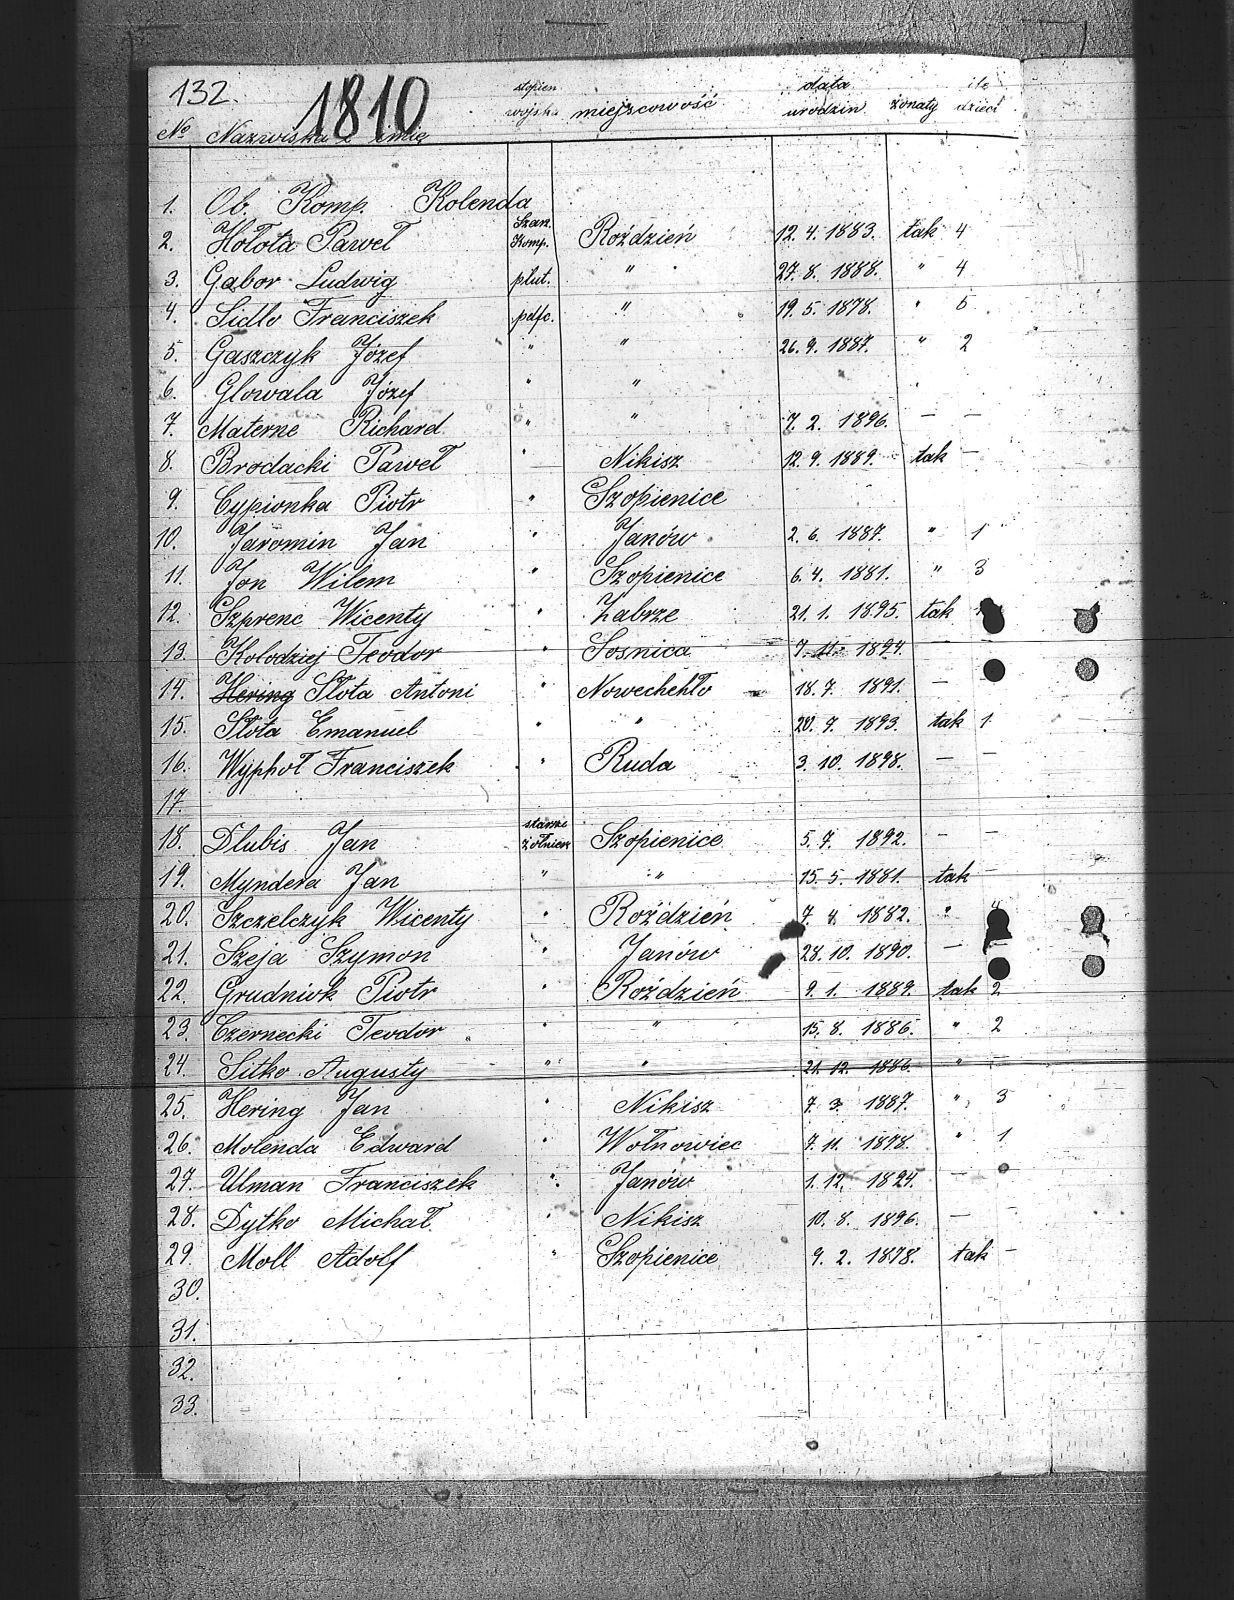 132. 1810
№ Nazwiska i imię stopien wojska miejscowość data urodzin żonaty ile dzieci
1. Ob. Komp. Kolenda
2. Hołota Paweł Szan. Komp. Roździeń 12. 4. 1883. tak 4
3. Gabor Ludwig plut. " 27. 8. 1888. " 4
4. Sidlo Franciszek pdfc. " 19. 5. 1878. " 5
5. Gaszczyk Józef " " 26. 9. 1887. " 2
6. Glowala Józef " "
7. Materne Richard " " 7. 2. 1896. — —
8. Brodacki Paweł " Nikisz 12. 9. 1889. tak —
9. Cypionka Piotr " Szopienice
10. Jaromin Jan " Janów 2. 6. 1887. " 1
11. Jon Wilem " Szopienice 6. 4. 1881. " 3
12. Szprenc Wicenty " Zabrze 21. 1. 1895. tak
13. Kolodziej Teodor " Sosnica 7. 11. 1894. — —
14. Hering Słota Antoni " Nowechehło 18. 7. 1891. —
15. Słota Emanuel " " 20. 9. 1893. tak 1
16. Wyphoł Franciszek " Ruda 3. 10. 1898. — —
17.
18. Dlubis Jan starszi żołnierz Szopienice 5. 7. 1892. — —
19. Myndera Jan " " 15. 5. 1881. tak —
20. Szczelczyk Wicenty " Roździeń 7. 4. 1882. " 4
21. Szeja Szymon " Janów 28. 10. 1890. — —
22. Grudniok Piotr " Roździeń 9. 1. 1889. tak 2
23. Czernecki Teodor " " 15. 8. 1886. " 2
24. Sitko Augusty " " 21. 12. 1886. " —
25. Hering Jan " Nikisz 7. 3. 1887. " 3
26. Molenda Edward " Wołnowiec 7. 11. 1878. " 1
27. Ulman Franciszek " Janów 1. 12. 1894. —
28. Dytko Michał " Nikisz 10. 8. 1896. — —
29. Moll Adolf " Szopienice 9. 2. 1878. tak —
30.
31.
32.
33.